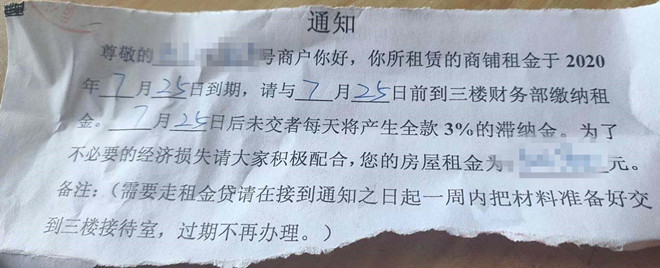 通知
尊敬的号商户你好，你所租赁的商铺租金于 2020
年7月25日到期，请与7月25日前到三楼财务部缴纳租
金。7月25日后未交者每天将产生全款 3%的滞纳金。为了
不必要的经济损失请大家积极配合，您的房屋租金为元。
备注：（需要走租金贷请在接到通知之日起一周内把材料准备好交
到三楼接待室，过期不再办理。）